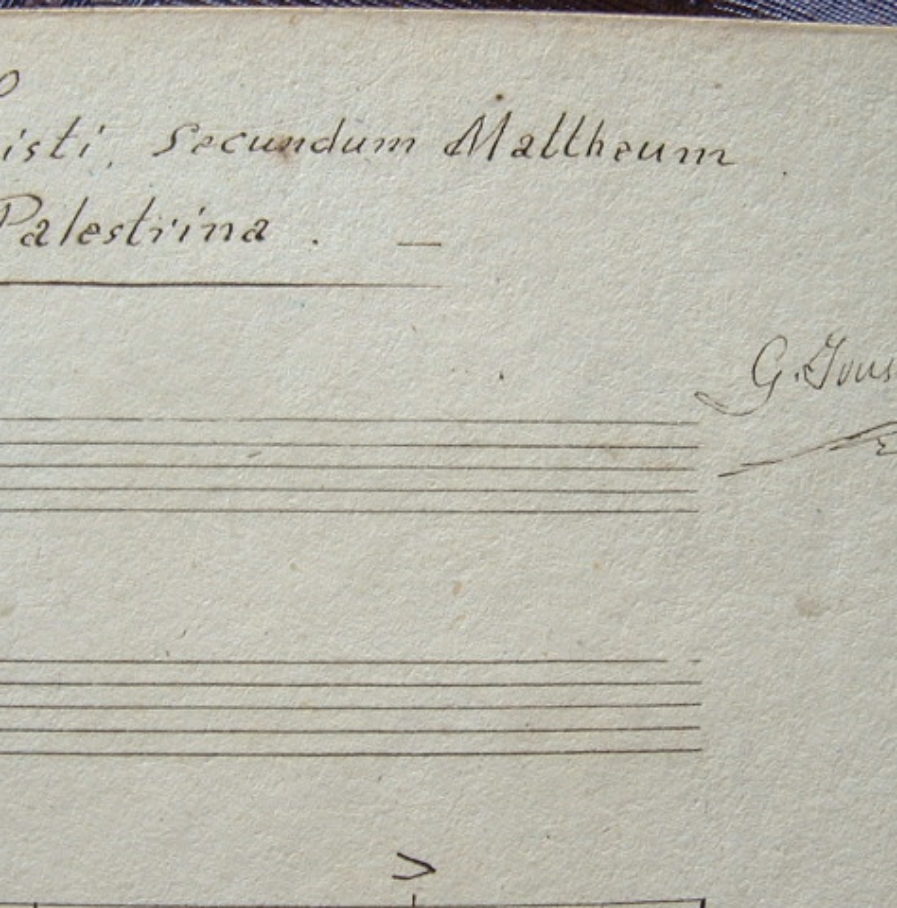 isti, secundum Mattheum
Palestrina . —
G. Jous